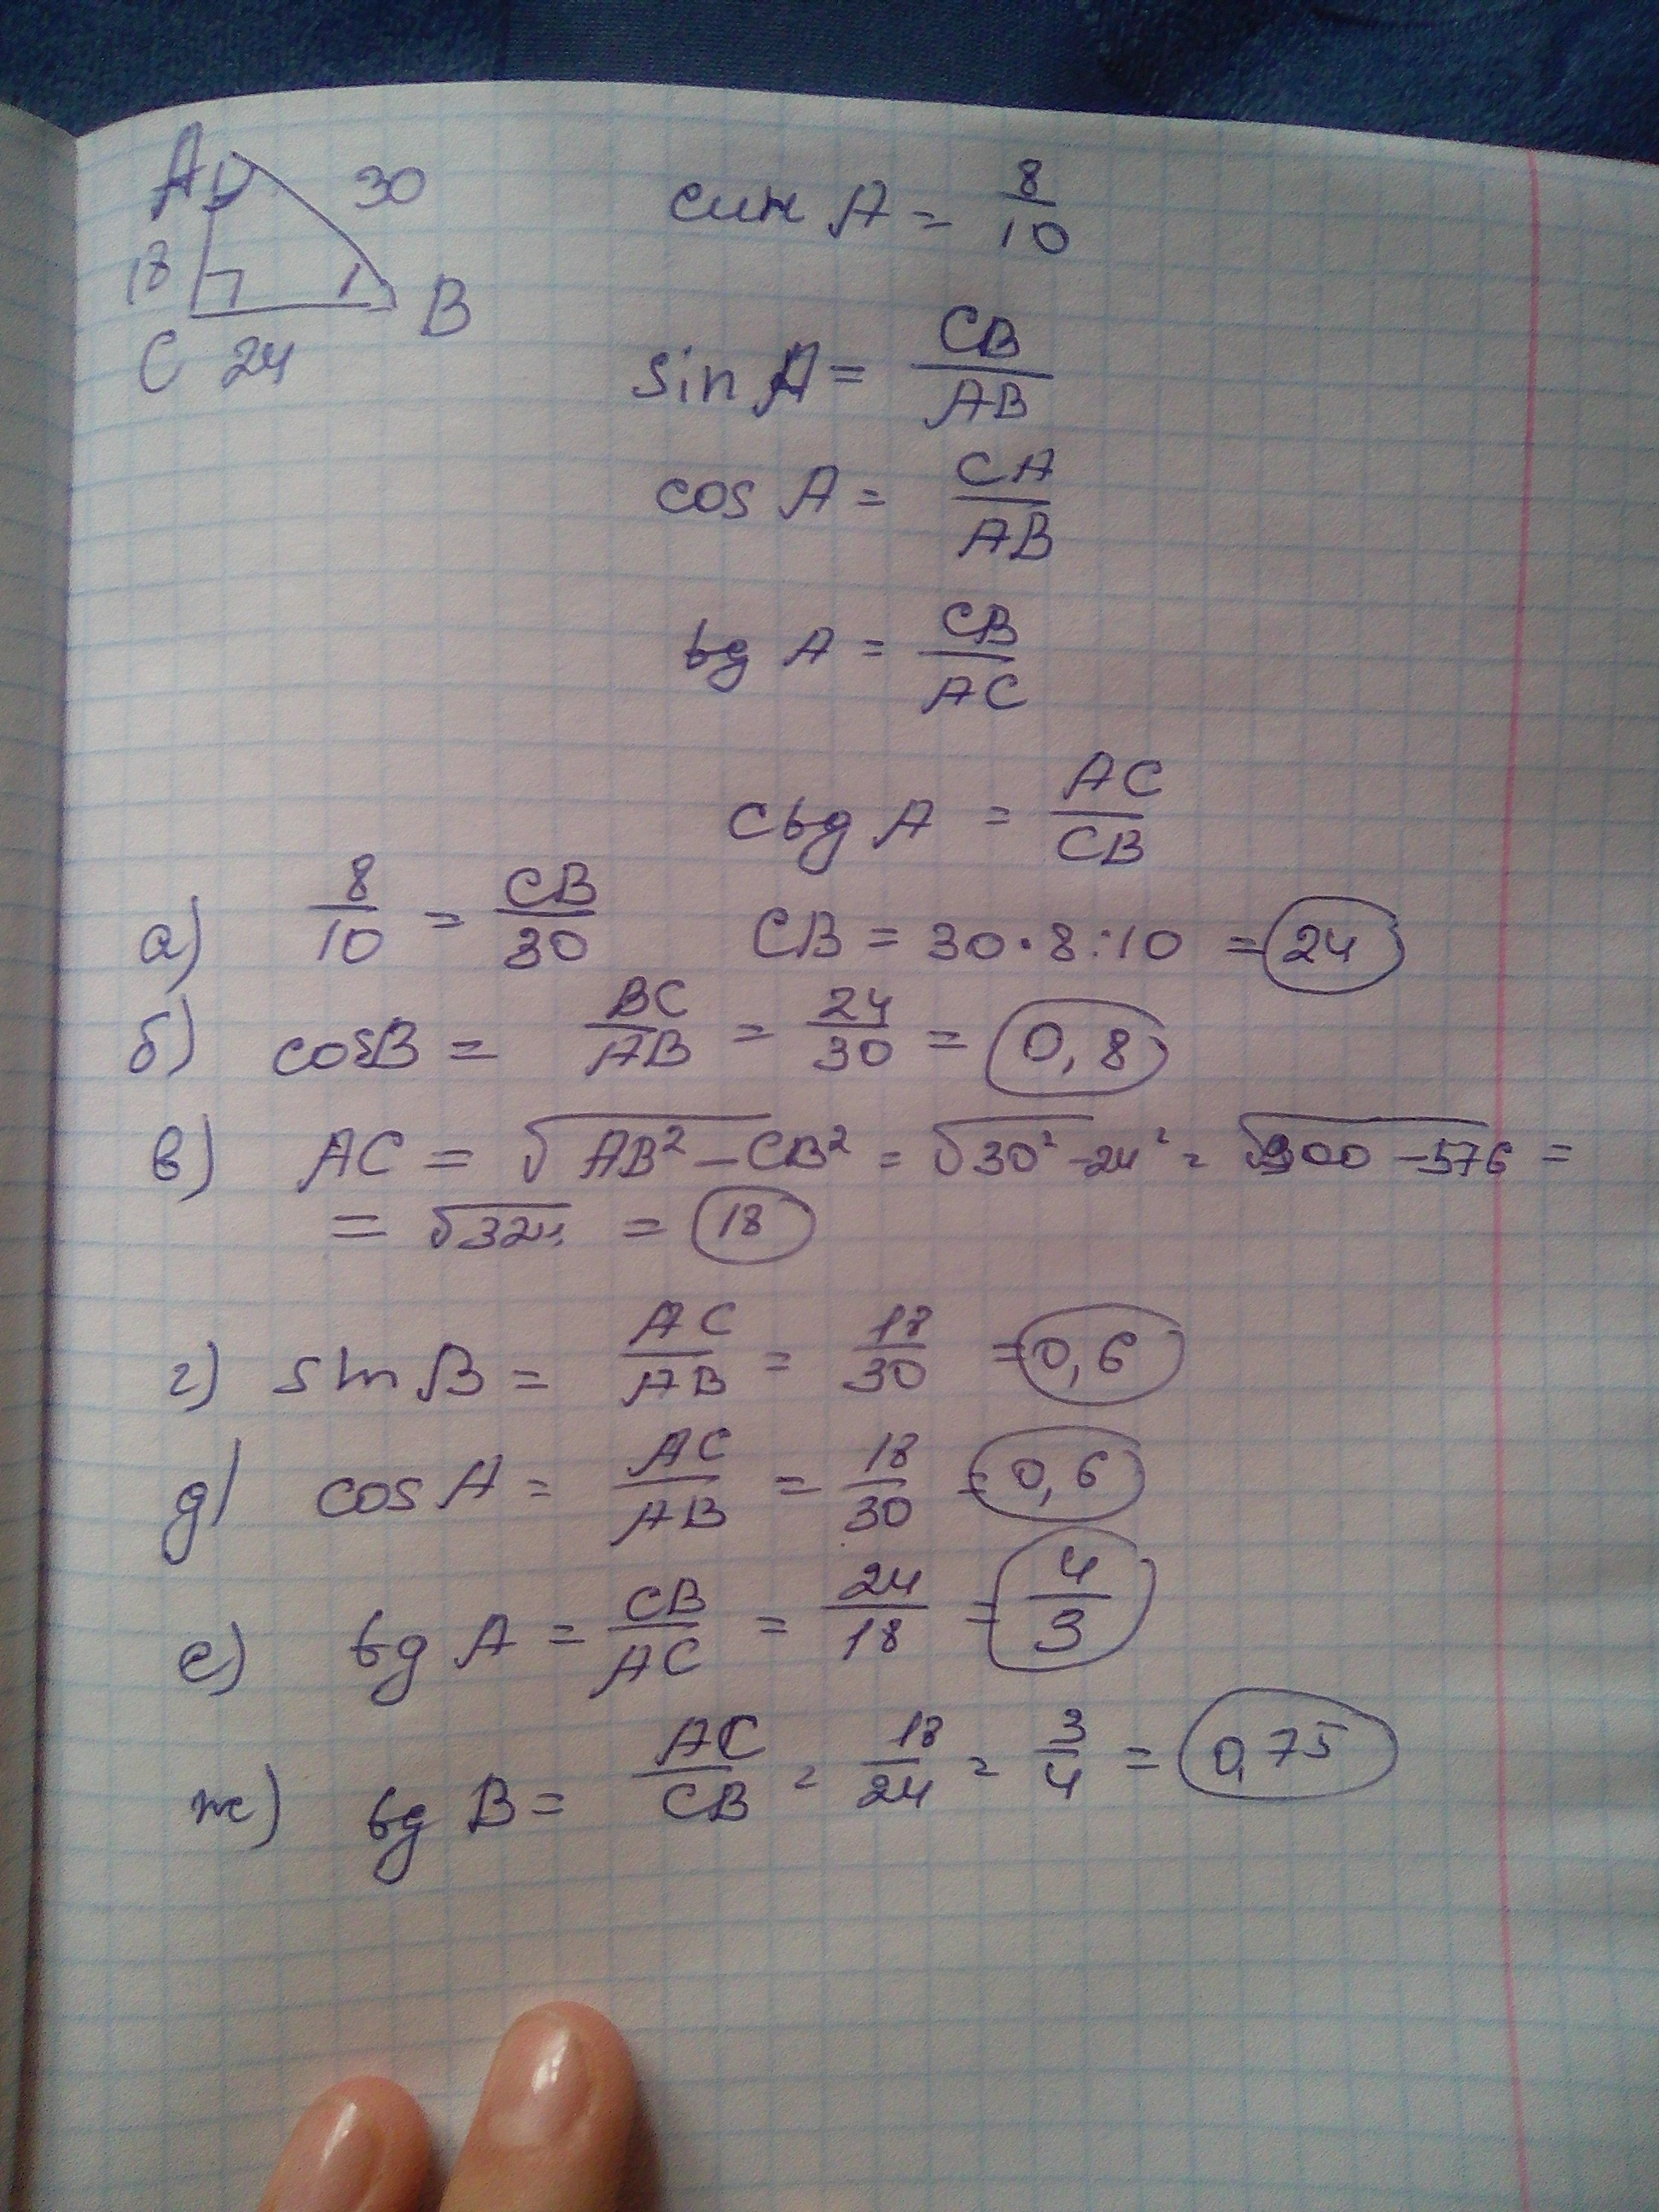 A 30
18
B
C 24
син A = 8/10
sin A = CB/AB
cos A = CA/AB
tg A = CB/AC
ctg A = AC/CB
а) 8/10 = CB/30 CB = 30·8:10 = 24
б) cosB = BC/AB = 24/30 = 0,8
в) AC = √AB² - CB² = √30² - 24² = √900 - 576 =
= √324 = 18
г) sin B = AC/AB = 18/30 = 0,6
д) cos A = AC/AB = 18/30 = 0,6
е) tg A = CB/AC = 24/18 = 4/3
ж) tg B = AC/CB = 18/24 = 3/4 = 0,75